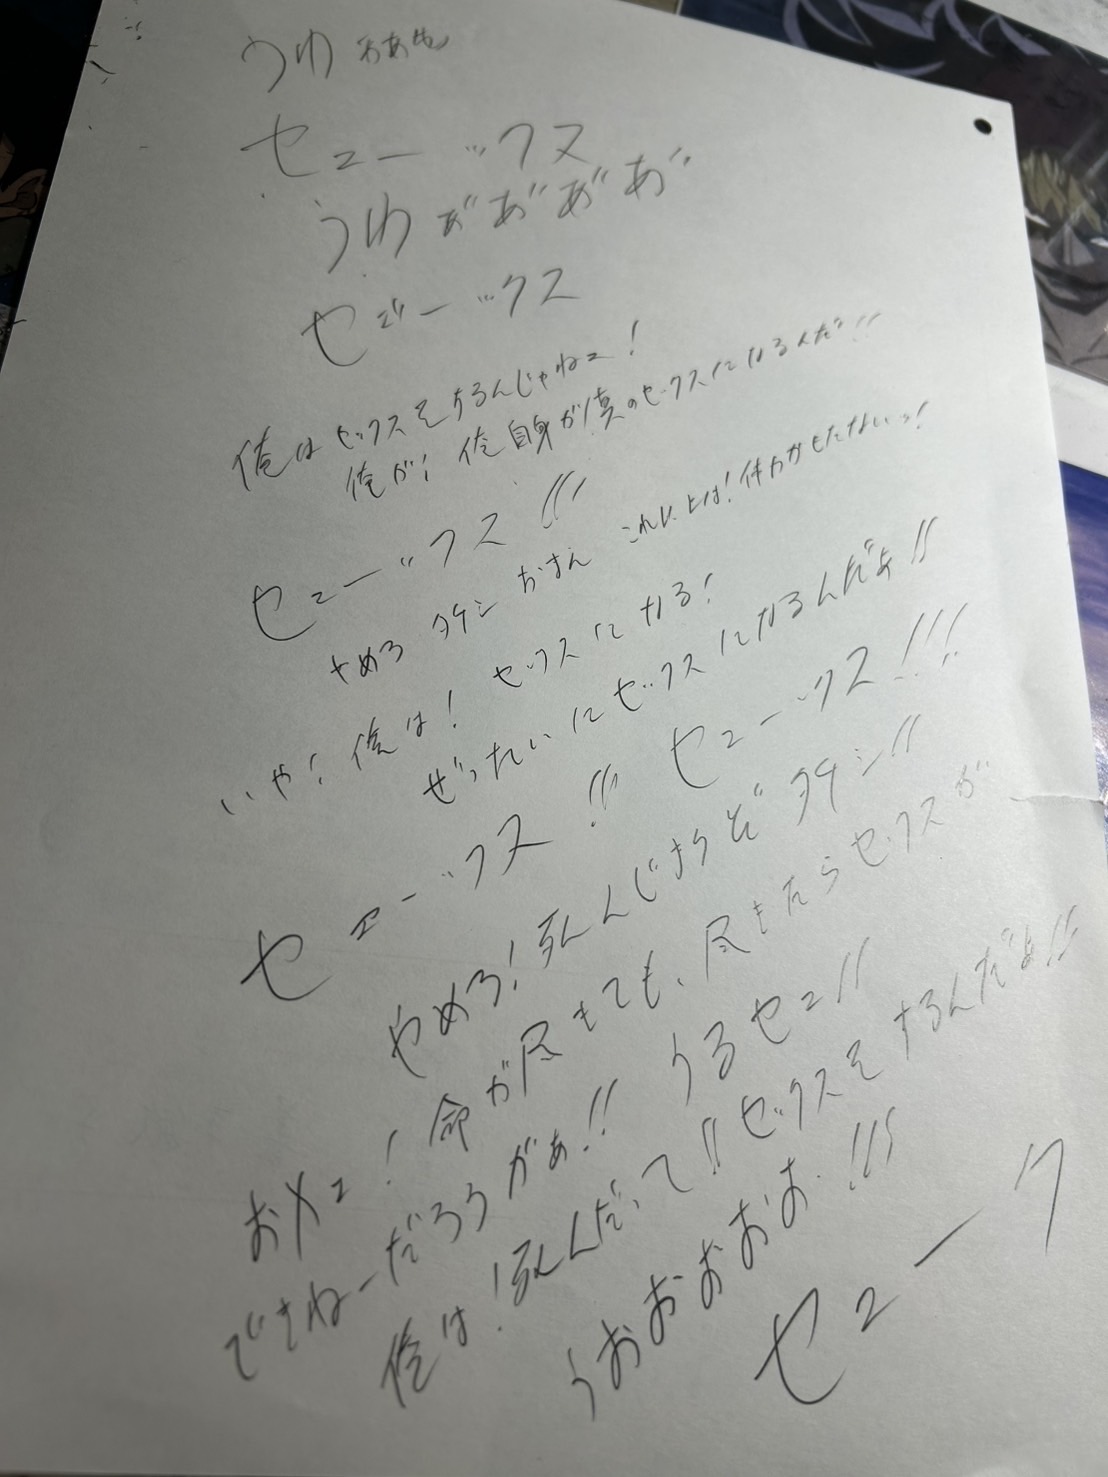 うわ
セェーックス
うわ あ゛あ゛あ゛あ゛
セェーックス
俺はセックスをするんじゃねェ!
俺が! 俺自身が真のセックスになるんだ!!
セェーックス!!!
やめろ タケシ これ以上は!体力がもたないっ!
いや!俺は! セックスになる!
ぜったいにセックスになるんだよ!!
セェーックス!!! セェーックス!!!
やめろ!死んじまうぞ タケシ!!
おメェ!命が尽きても、尽きたらセックスが
できねーだろうがぁ!! うるセェ!!
俺は!死んだって!!セックスをするんだよ!!
うおおおおお!!!
セェーク